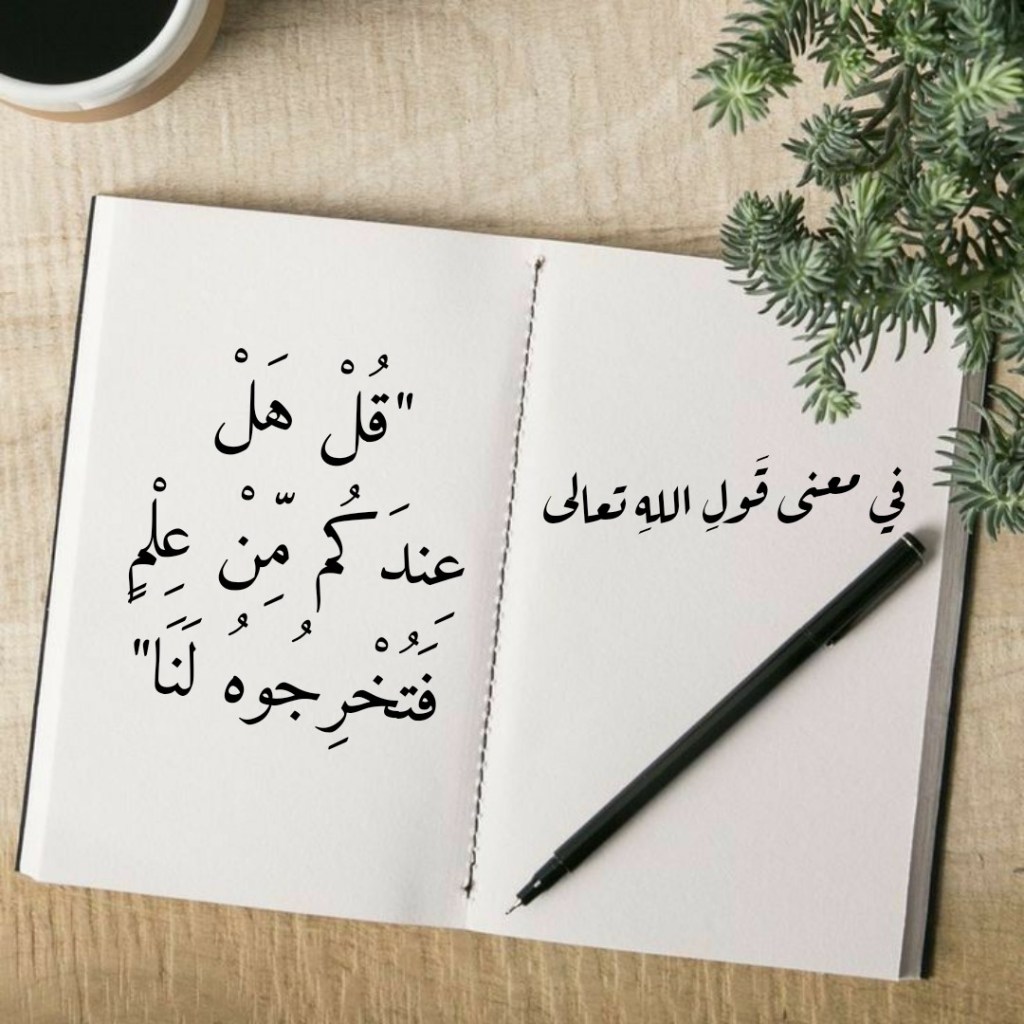 في معنى قَولِ اللهِ تعالى
"قُلْ هَلْ
عِندَكُم مِّنْ عِلْمٍ
فَتُخْرِجُوهُ لَنَا"